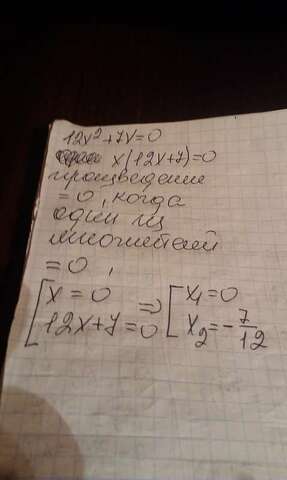 12x²+7x=0
x(12x+7)=0
произведение
=0, когда
один из
множителей
=0,
[x=0 => [x₁=0
[12x+7=0 [x₂=-7/12